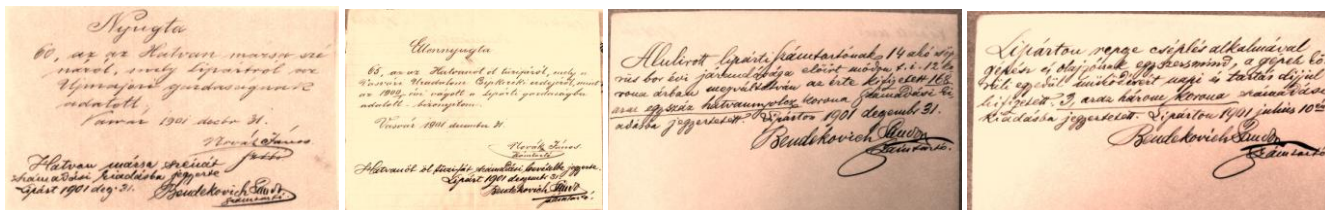 Nyugta
60, az az Hatvan mársa szé
náról, mely lipártról az
Ujmajori gazdaságnak
adatott,
Vasvár 1901 decbr 31.
Novák János
Hatvan mársa szénát
számadási kiadásba jegyezte
Lipárt 1901 deg. 31.
Bendekovich Sándor
számtartó
Ellennyugta
65, az az Hatvanöt öl tűzifáról, mely a
Vasvári Uradalom
az 1900
adatott - bizonyítom.
Vasvár 1901 december 31.
Novák János
Hatvanöt öl tűzifát számadási bevételbe jegyezte.
Lipárt 1901 degemb. 31.
Bendekovich Sándor
számtartó
Alulirott lipárti számtartónak, 14 akó
bor évi járandósága előirt módra, t. i. 12 ko
rona árban megváltatván az érte kifizetett 168
azaz egyszáz hatvannyolcz korona számadási ki
adásba jegyeztetett. Lipárton 1901 degemb. 31.
Bendekovich Sándor
számtartó.
Lipárton repge cséplés alkalmával
gépész és olajzónak egyszersmind, a gépek kö
rüli egyedül működőért napi és tartás díjul
kifizetett 3, azaz három korona számadási
kiadásba jegyeztetett. Lipárton 1901 július 10én
Bendekovich Sándor
számtartó